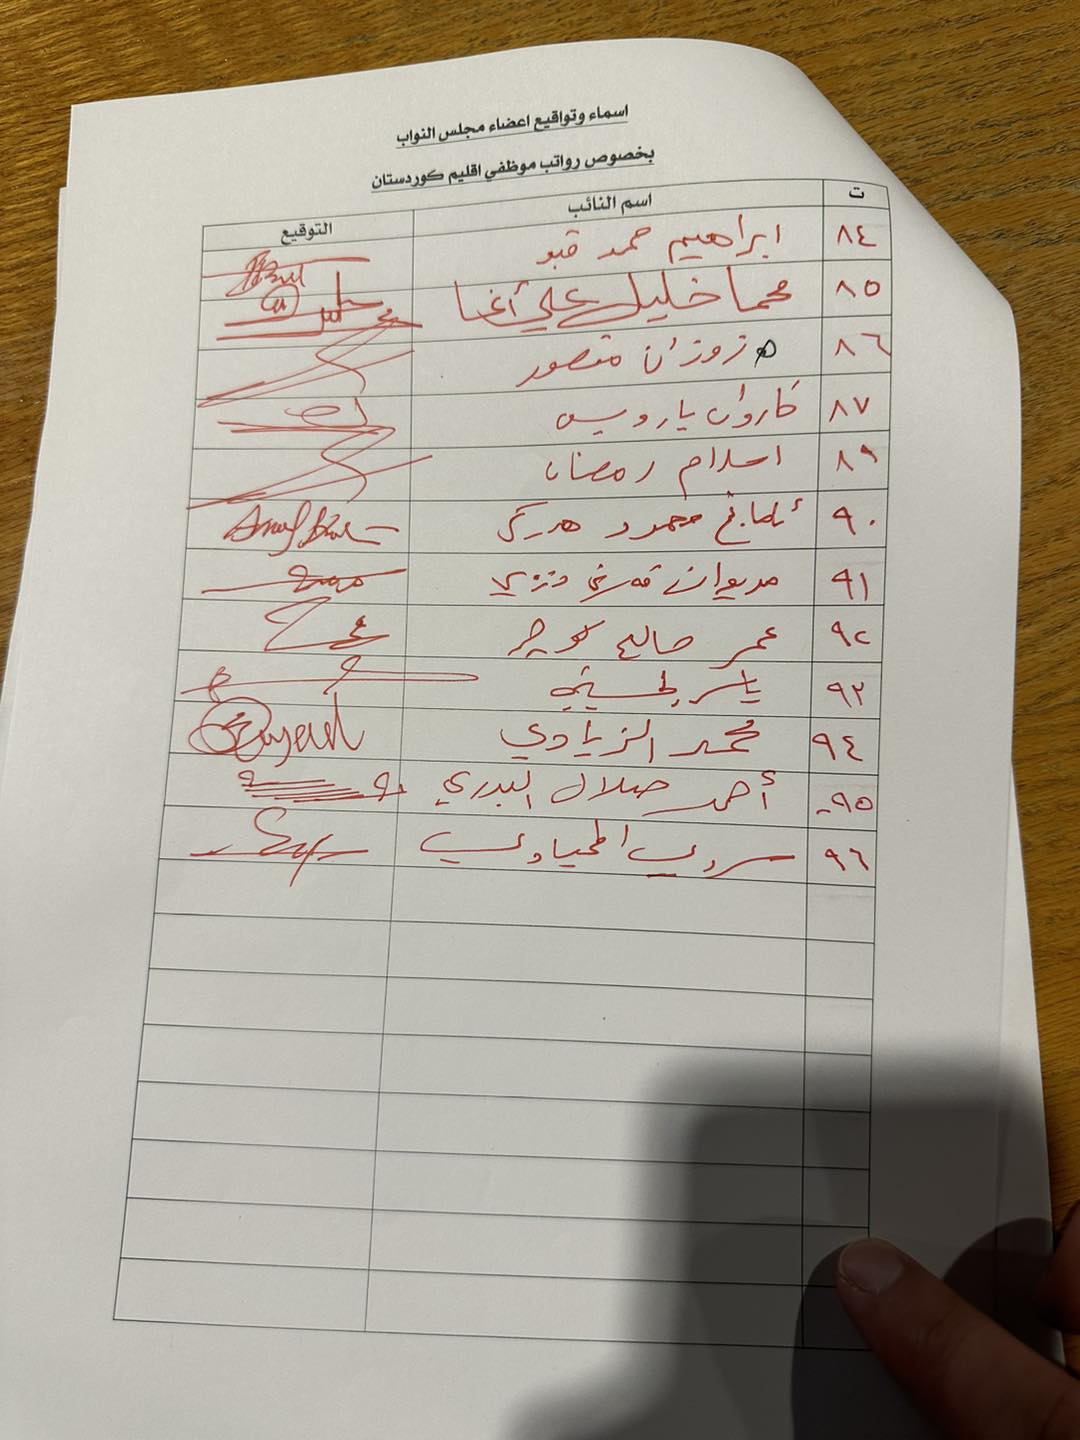 اسماء وتواقيع اعضاء مجلس النواب
بخصوص رواتب موظفي اقليم كوردستان
ت اسم النائب التوقيع
٨٤ ابراهيم حمد قبو
٨٥ محما خليل علي أغا
٨٦ زوزان منصور
٨٧ كاروان يارويس
٨٩ اسلام رمضان
٩٠ محمود هركي
٩١ مريوان قەرەنی
٩٢ عمر صالح كوجر
٩٣ ياسر الحسيني
٩٤ محمد الزيادي
٩٥ أحمد صلال البدري
٩٦ المحياوي